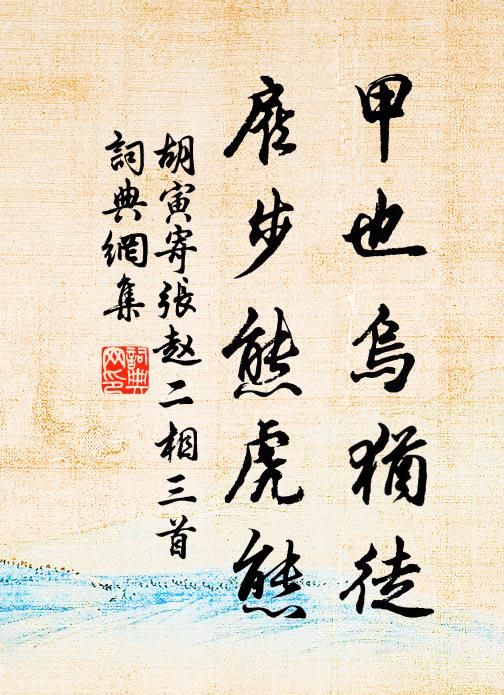 甲也烏猶徒
步熊虎熊
胡寅寄張赵二相三首
詞典網集
詞典
网印